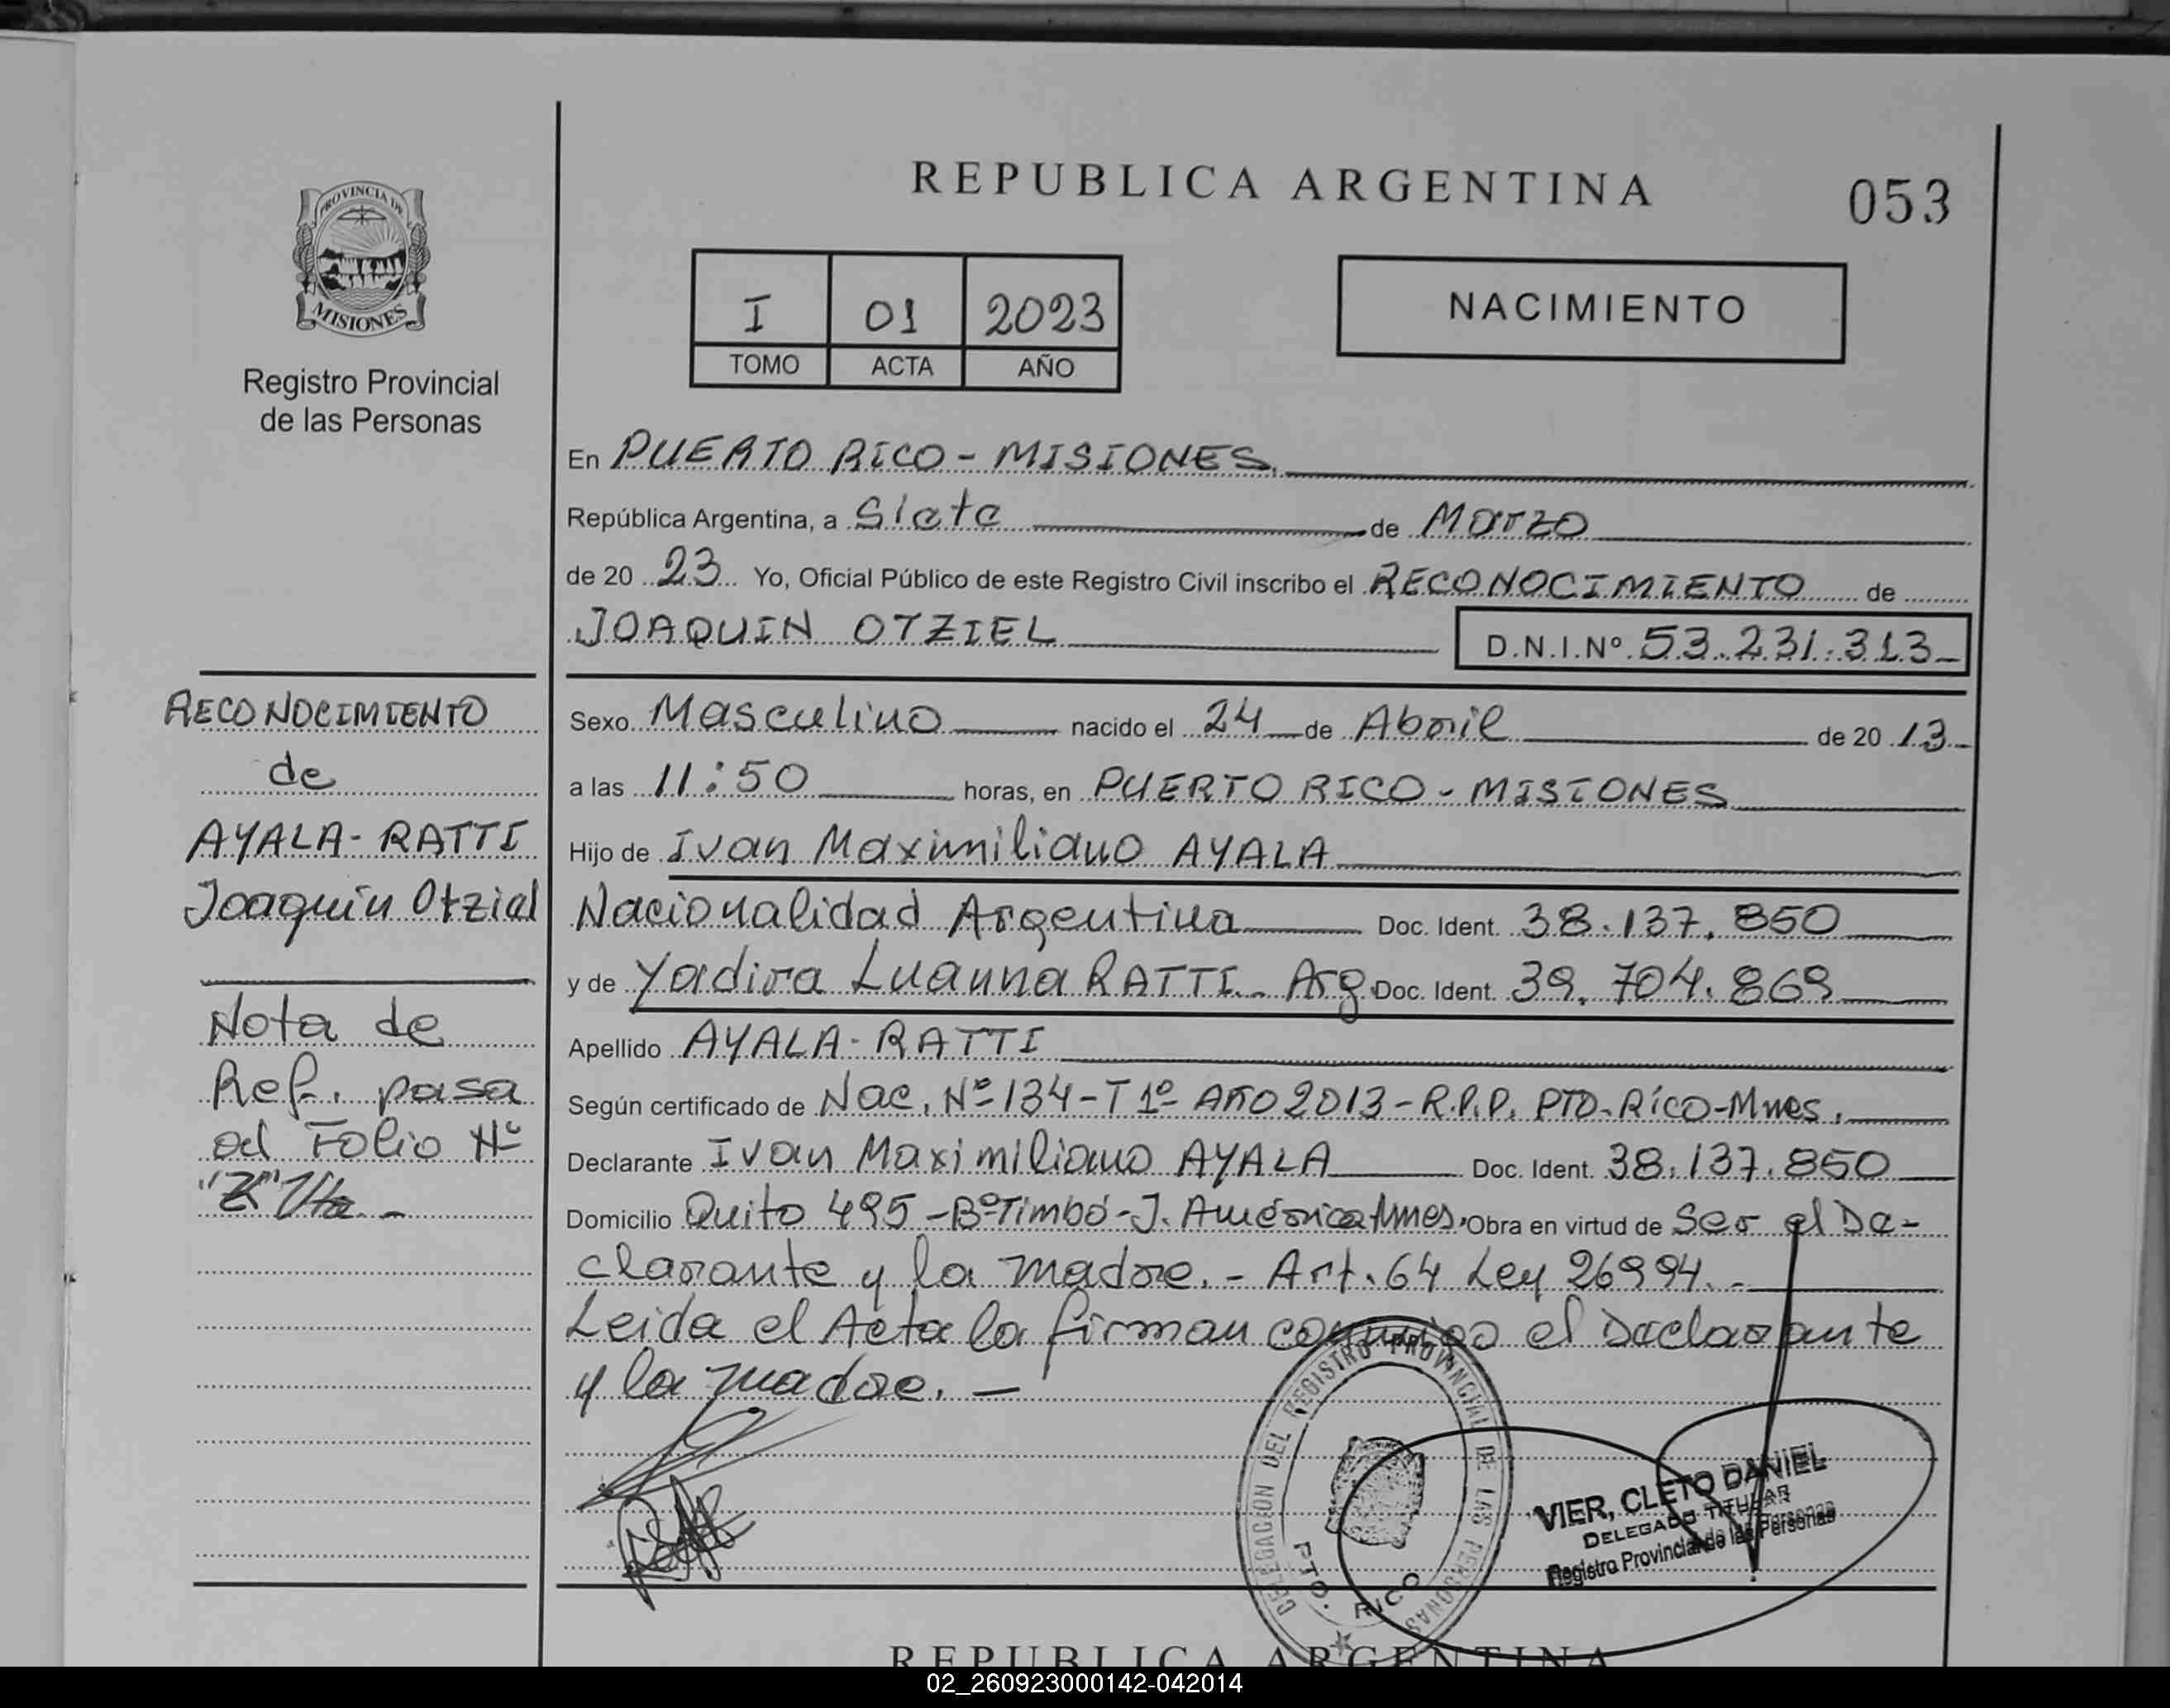 REPUBLICA ARGENTINA
053
PROVINCIA DE
MISIONES
Registro Provincial
de las Personas
I 01 2023
TOMO ACTA AÑO
NACIMIENTO
En PUERTO RICO - MISIONES.
República Argentina, a Siete de Marzo
de 20 23 Yo, Oficial Público de este Registro Civil inscribo el RECONOCIMIENTO de
JOAQUIN OTZIEL D.N.I.Nº 53.231.313
Sexo Masculino nacido el 24 de Abril de 20 13
a las 11:50 horas, en PUERTO RICO - MISIONES
Hijo de Ivan Maximiliano AYALA
Nacionalidad Argentina Doc. Ident. 38.137.850
y de Yadira Luanna RATTI - Arg. Doc. Ident. 39.704.869
Apellido AYALA - RATTI
Según certificado de Nac. Nº 134 - T 1º AÑO 2013 - R.P.P. PTO-RICO-Mnes.
Declarante Ivan Maximiliano AYALA Doc. Ident. 38.137.850
Domicilio Quito 495 - Bº Timbó - J. América Mnes. Obra en virtud de Ser el De-
clarante y la madre. - Art. 64 Ley 26994. -
Leida el Acta la firman conmigo el Declarante
y la madre. -
RECONOCIMIENTO
de
AYALA - RATTI
Joaquín Otziel
Nota de
Ref. pasa
al Folio Nº
DELEGACION DEL REGISTRO PROVINCIAL DE LAS PERSONAS
PTO. RICO
VIER, CLETO DANIEL
DELEGADO TITULAR
Registro Provincial de las Personas
REPUBLICA ARGENTINA
02_260923000142-042014